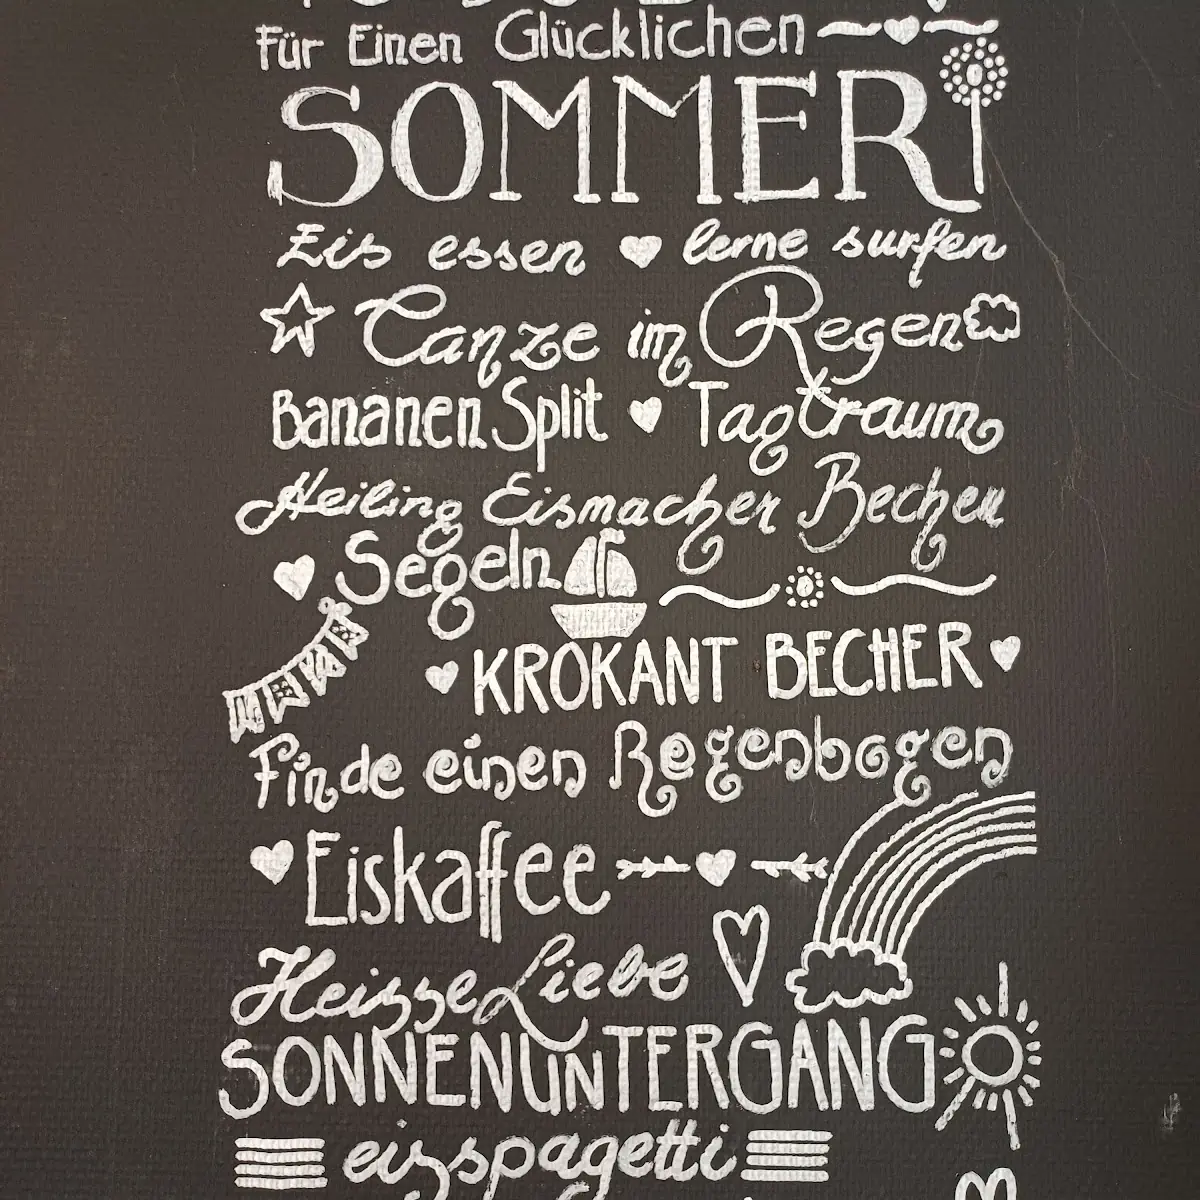 Für Einen Glücklichen
SOMMER
Eis essen lerne surfen
Tanze im Regen
Bananen Split Tagtraum
Heiling Eismacher Becher
Segeln
KROKANT BECHER
Finde einen Regenbogen
Eiskaffee
Heisse Liebe
SONNENUNTERGANG
eisspagetti